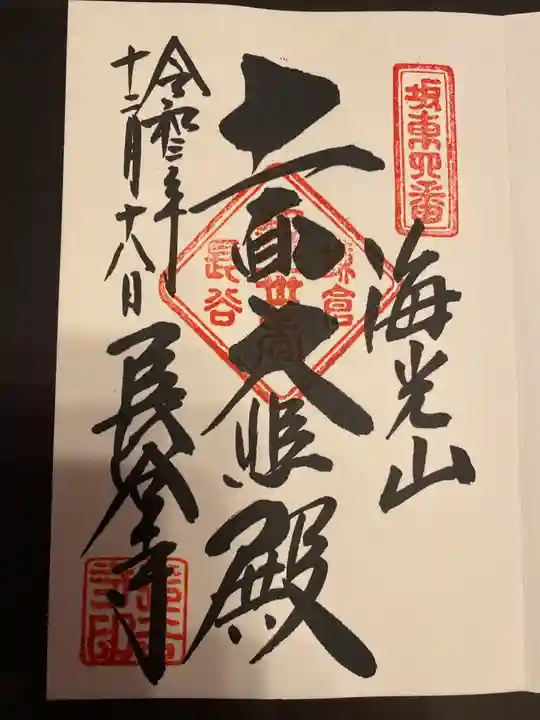 坂東四番
海光山
十一面大悲殿
鎌倉
長谷
令和三年
十二月十八日
長谷寺